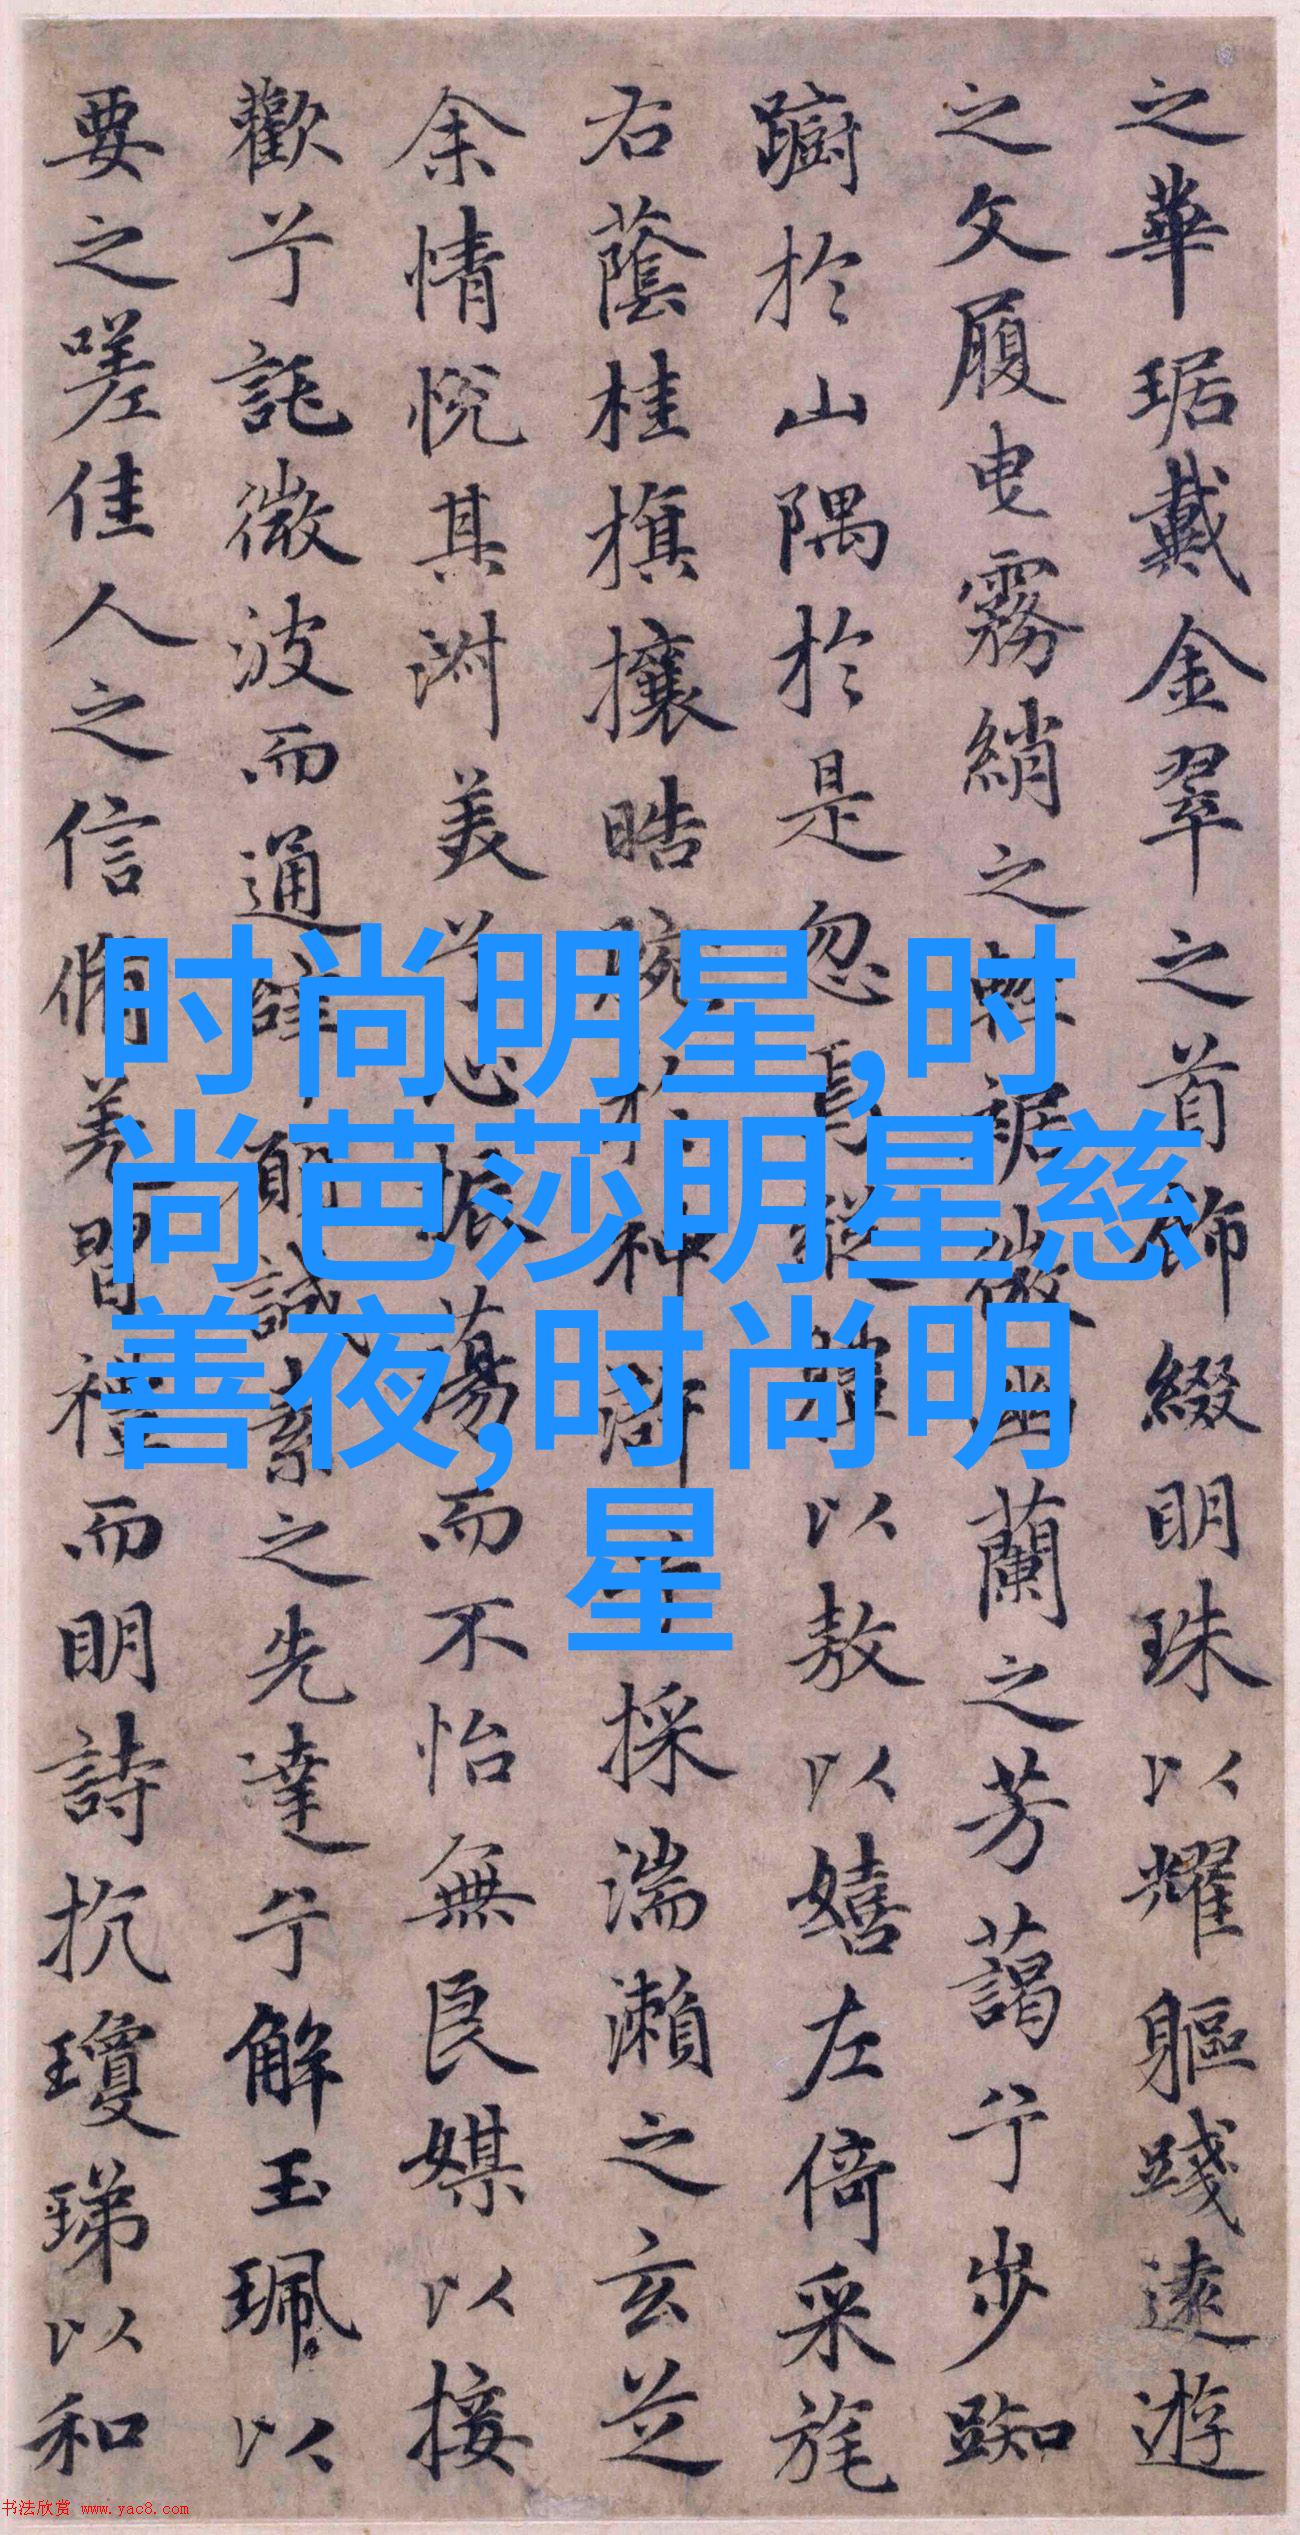 之華琚戴金翠之首飾綴明珠以耀軀踐遠遊
之文履曳霧綃之輕裾微幽蘭之芳藹兮步踟
躕於山隅於是忽焉縱體以敖以嬉左倚采旄
右蔭桂旗攘晧腕於神滸兮採湍瀨之玄芝
余情悅其淑美兮心振蕩而不怡無良媒以接
歡兮託微波而通辭願誠素之先達兮解玉珮以
要之嗟佳人之信脩羌習禮而明詩抗瓊珶以和
时尚明星,时
尚芭莎明星慈
善夜,时尚明
星
书法欣赏 www.yac8.com